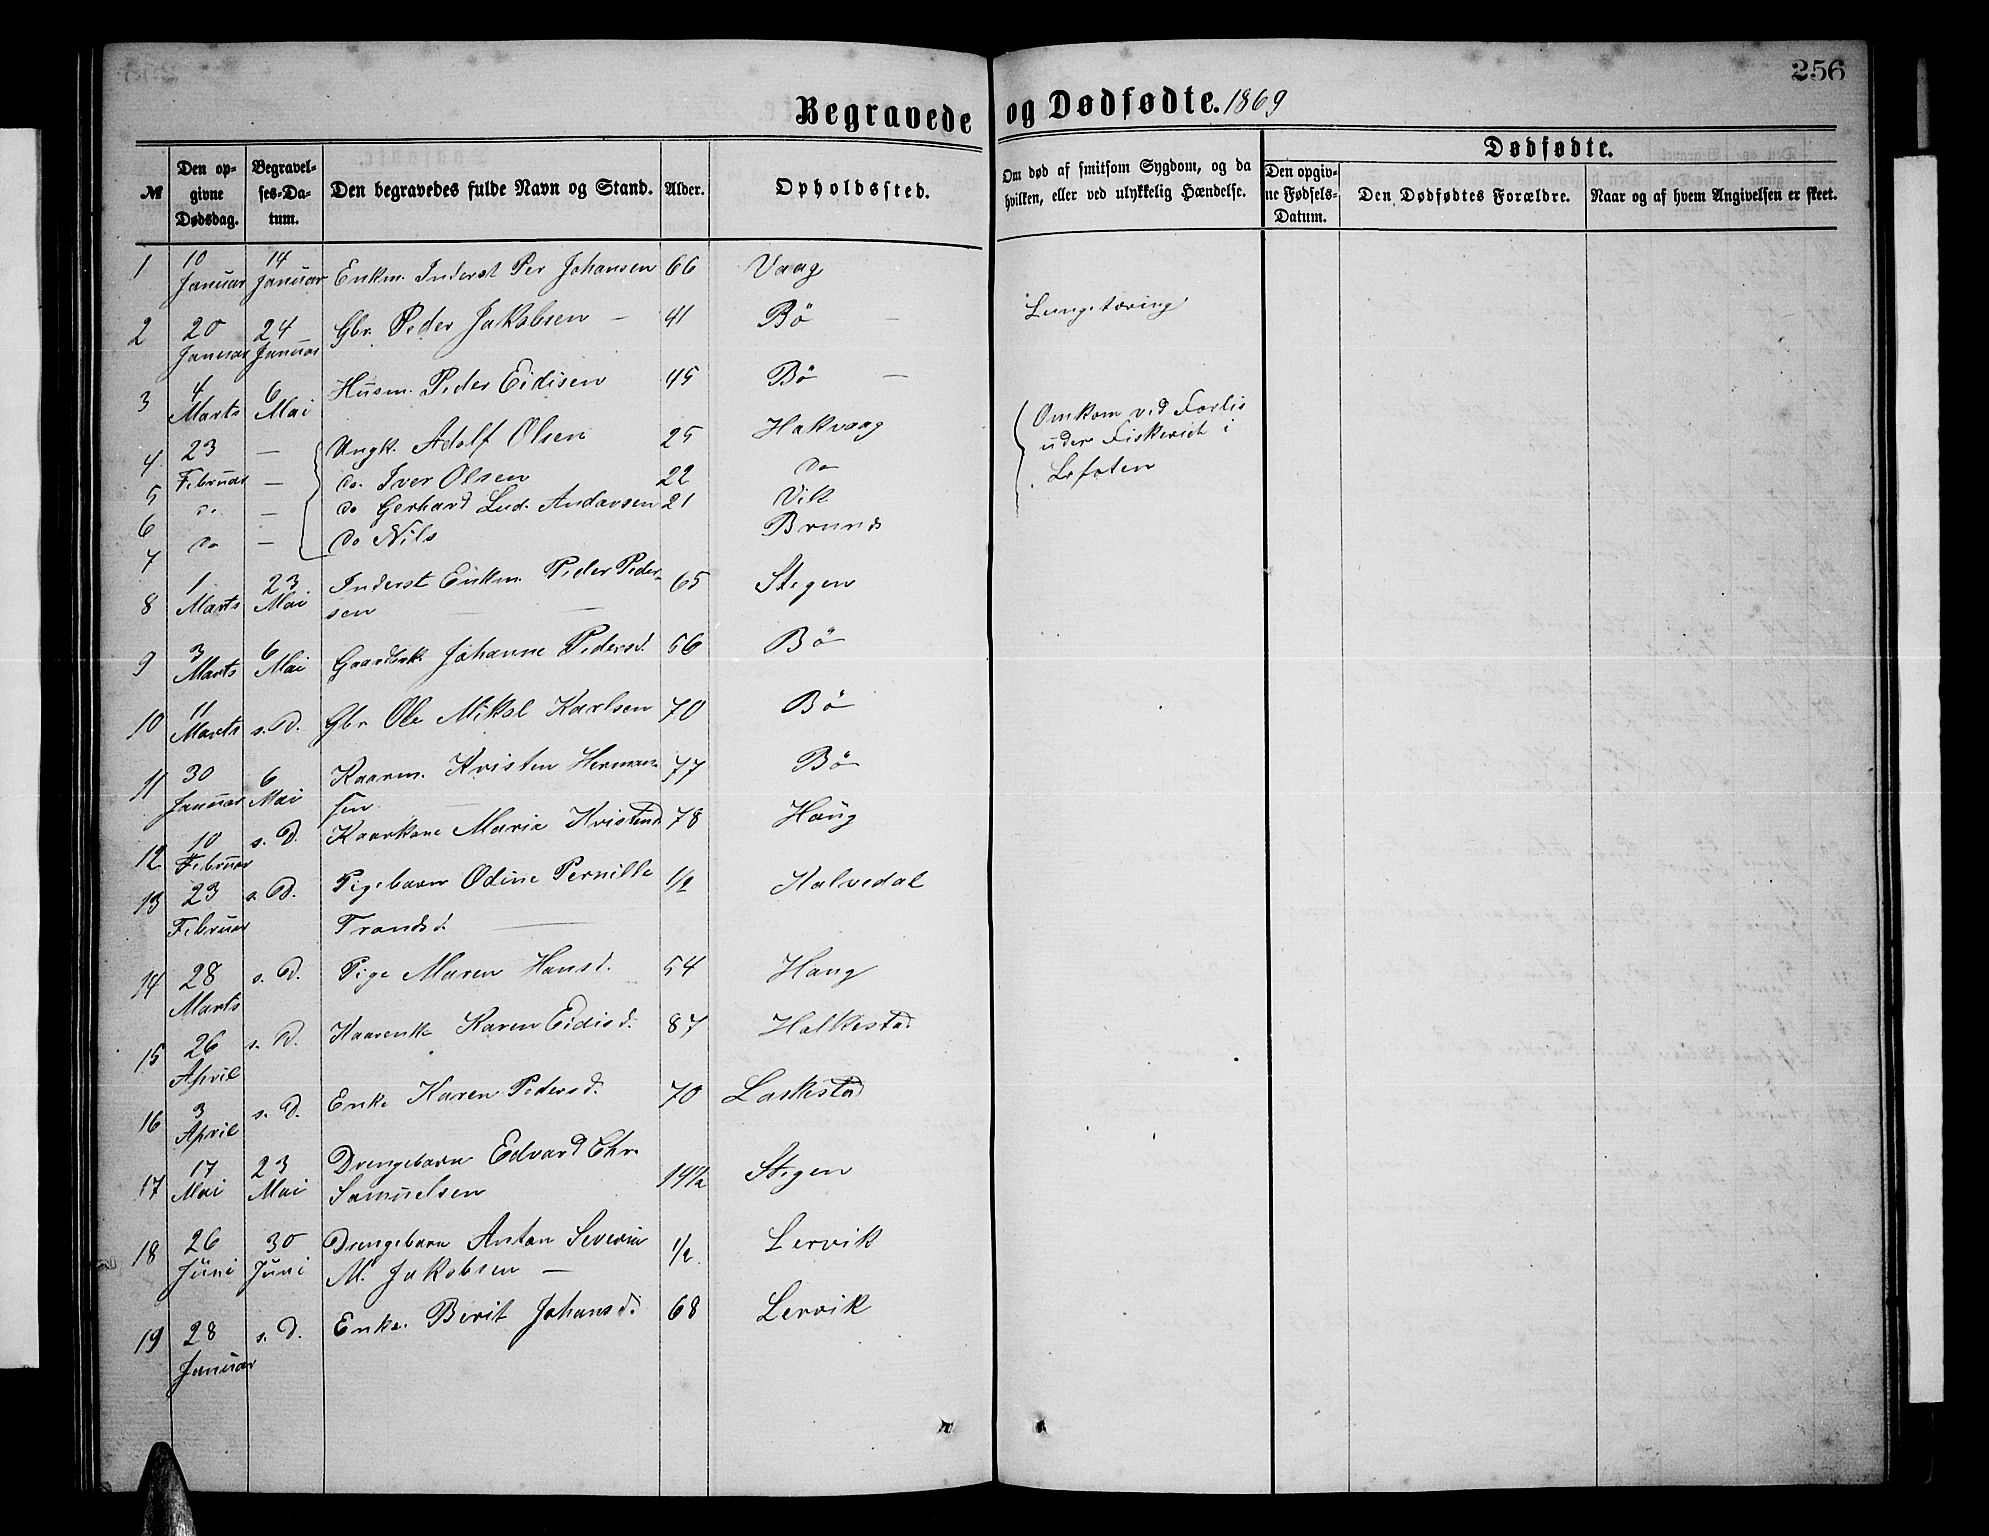 256
Begravede og Dødfødte. 1869
№ Den opgivne Dødsdag. Begravelses-Datum. Den begravedes fulde Navn og Stand. Alder. Opholdssted. Om død af smitsom Sygdom, og da hvilken, eller ved ulykkelig Hændelse. Dødfødte. Den opgivne Fødsels-Datum. Den Dødfødtes Forældre. Naar og af hvem Angivelsen er skeet.
1 10 Januar 14 Januar Enkm. Inderst Per Johansen 66 Vaag
2 20 Januar 24 Januar Gbr. Peder Jakobsen — 41 Bö — Lungetæring
3 4 Marts 6 Mai Husm. Peder Eidisen 45 Bö —
4 23 Februar — Ungk. Adolf Olsen 25 Hakvaag Omkom ved Forlis
5 — do. Iver Olsen 22 do under Fiskeriet i
6 do — do Gerhard Lud. Andersen 21 Vik Lofoten
7 do — do Nils Brunds
8 1 Marts 23 Mai Inderst Enkm. Peder Peder-
sen — —
65 Stegen
9 3 Marts 6 Mai Gaardkk. Johanne Pedersd. 56 Bö
10 11 Marts s. D. Gbr Ole Mikal Karlsen 70 Bö
11 30 Januar 6 Mai Kaarem. Kristen Herman-
sen — 77 Bö
12 10 Februar s. D. Kaarkone Maria Kristensd 78 Haug
13 23 Februar s. D. Pigebarn Odine Pernille
Trondsd. — 1/2 Kalvedal
14 28 Marts s. D. Pige Maren Hansd. 54 Haug
15 26 April s. D. Kaarenke Karen Eidisd. 87 Holkestad
16 3 April s. D. Enke Karen Pedersd. 70 Laskestad
17 17 Mai 23 Mai Drengebarn Edvard Chr.
Samuelsen 14 1/2 Stegen
18 26 Juni 30 Juni Drengebarn Anton Severin
M. Jakobsen — 1/2 Lervik
19 28 Januar s. D. Enke. Berit Johansd. 68 Lervik